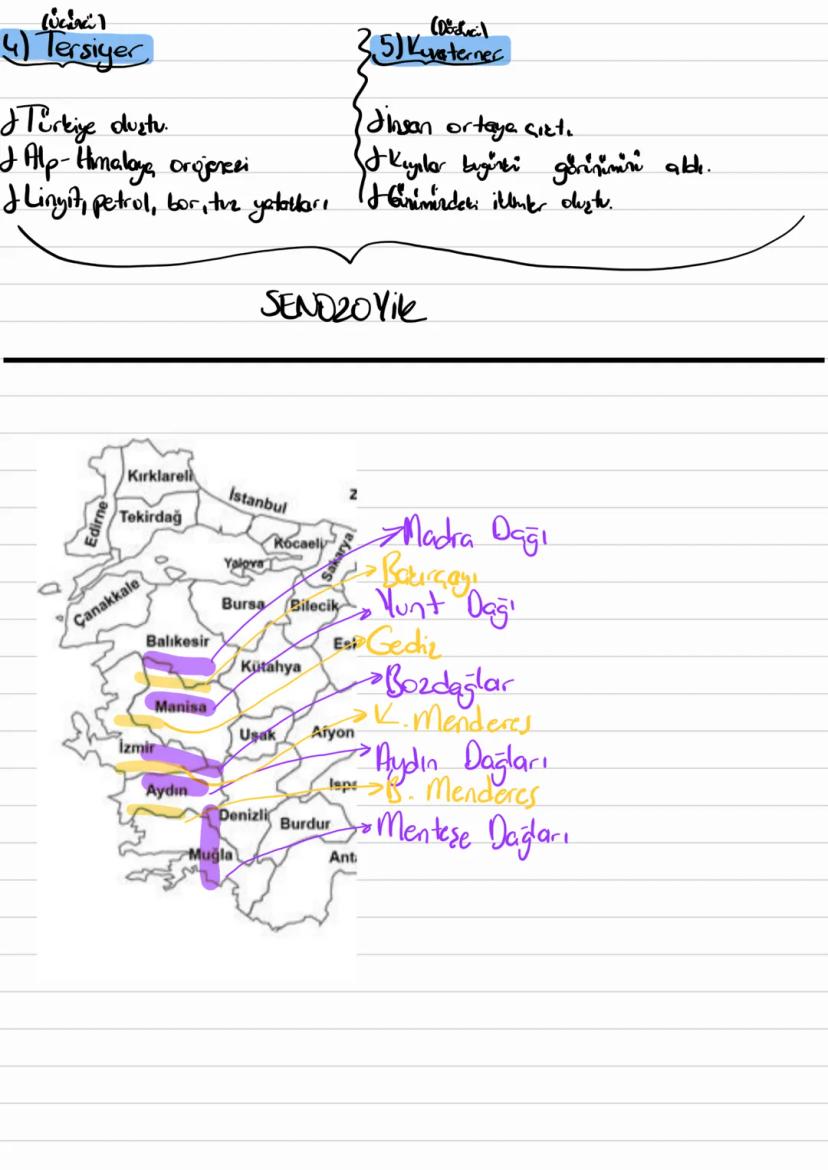 (Üçüncü)
4) Tersiyer
Türkiye oluştu.
Alp-Himalaya orojenezi
Linyit, petrol, bor, tuz yatakları
(Dördüncü)
5) Kuvaterner
İnsan ortaya çıktı.
Kıyılar bugünkü görünümünü aldı.
Günümüzdeki iklimler oluştu.
SENOZOYİK
Kırklareli
Edirne
Tekirdağ
İstanbul
Z
Kocaeli
Sakarya
Yalova
Çanakkale
Bursa
Bilecik
Balıkesir
Kütahya
Manisa
Uşak
Afyon
İzmir
Aydın
Denizli
Burdur
Muğla
Ant
Madra Dağı
Bakırçayı
Yunt Dağı
Gediz
Bozdağlar
K. Menderes
Aydın Dağları
B. Menderes
Menteşe Dağları